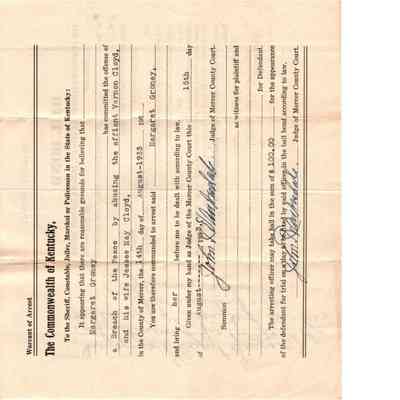 Warrant of Arrest
The Commonwealth of Kentucky,
To the Sheriff, Constable, Jailer, Marshal or Policeman in the State of Kentucky:
It appearing that there are reasonable grounds for believing that
Margaret Gromey
has committed the offense of
a Breach of the Peace by abusing the affiant Vernon Cloyd,
and his wife Jessee May Cloyd,
in the County of Mercer, the 14th day of August-1953 191
You are therefore commanded to arrest said Margaret Gromey,
and bring her before me to be dealt with according to law.
Given under my hand as Judge of the Mercer County Court this 15th day
of August
Judge of Mercer County Court.
Summon as witness for plaintiff and
for Defendant.
The arresting officer may take bail in the sum of $ 100.00 for the appearance
of the defendant for trial on the bail bond according to law.
Judge of Mercer County Court.